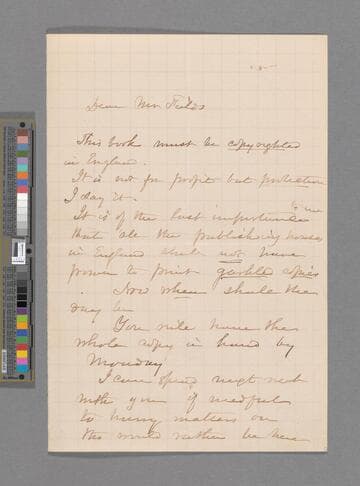 Dear Mr Fields
This book must be copyrighted
in England.
It is not for profit but protection
I say it.
to me
It is of the last importance
that all the publishing houses
in England shall not have
power to print garbled copies
. Now when shall the
day be
You will have the
whole copy in hand by
Monday
I can spend next week
with you if needful
to hurry matters on
tho would rather be here